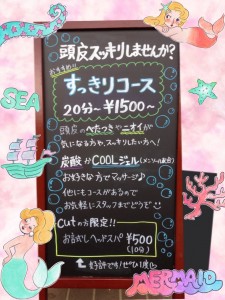 頭皮スッキリしませんか?
おすすめ!!
すっきりコース
20分~ ¥1500~
頭皮のべたつきやニオイが
気になる方や、スッキリしたい方へ!
炭酸やCOOLジェル(メンソール配合)
お好きな方でマッサージ♪
他にもコースがあるので
お気軽にスタッフまでどうぞ
Cutの方限定!!
お試しヘッドスパ ¥500
(10分)
↑好評です!ぜひ1度
SEA
MERMAID